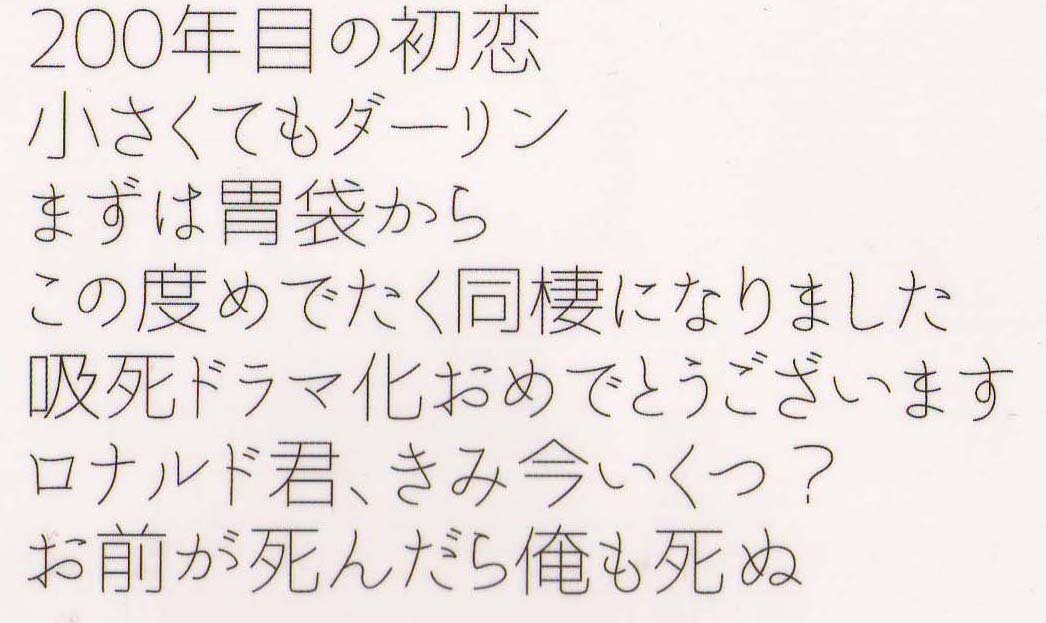 200年目の初恋
小さくてもダーリン
まずは胃袋から
この度めでたく同棲になりました
吸死ドラマ化おめでとうございます
ロナルド君、きみ今いくつ？
お前が死んだら俺も死ぬ